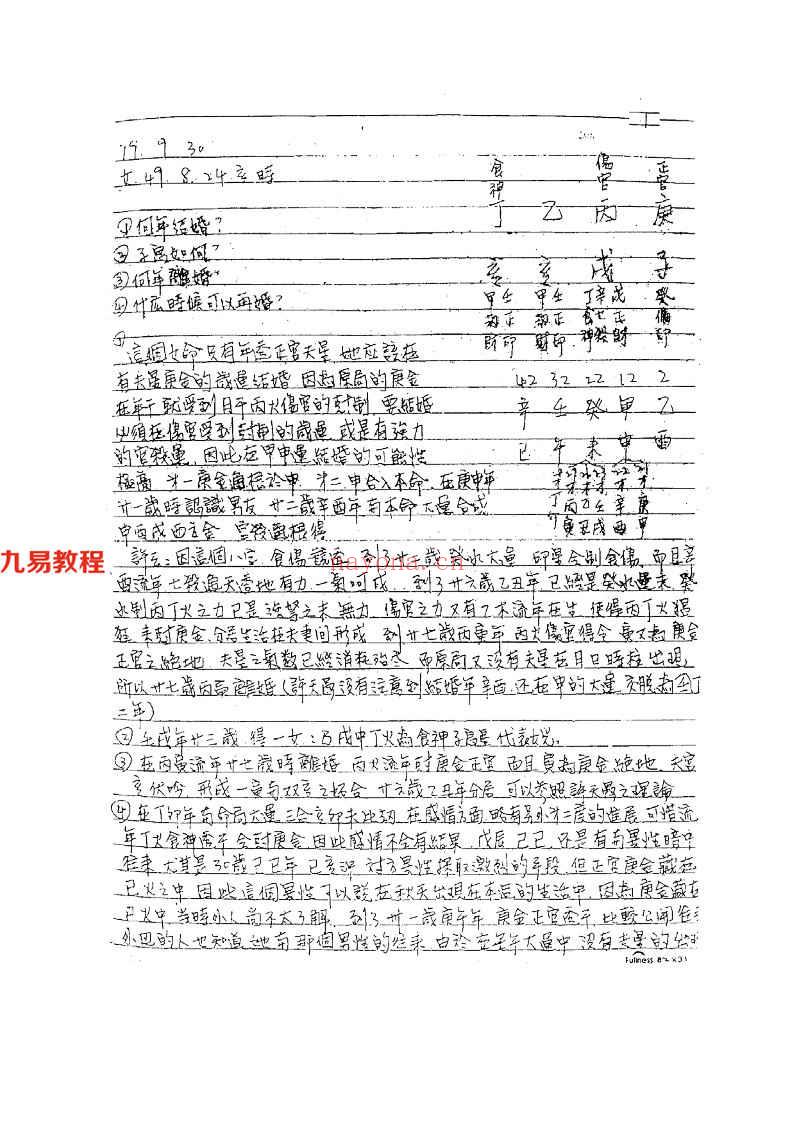 79. 9. 30
女. 49. 8. 24 亥時
食神 傷官 正官
丁 乙 丙 庚
①何年結婚?
②子息如何?
③何年離婚?
④什么時候可以再婚?
亥 亥 戌 子
甲壬 甲壬 丁辛戊 癸
劫正 劫正 食七正 偏
財印 財印 神殺財 印
①
這個女命只有年透正官夫星 她应該在
有夫星庚金的歲運結婚 因為原局的庚金
42 32 22 12 2
在年干就受到月干丙火傷官的尅制 要結婚
辛 壬 癸 甲 乙
必須在傷官受到尅制的歲運 或是有強力
的官殺運 因此在甲申運結婚的可能性
巳 午 未 申 酉
極高 第一庚金通根於申 第二申合入本命 在庚申年
廿一歲時認識男友 廿二歲辛酉年 與本命大運合成
丁丙乙 辛庚
卯寅丑戌酉申
申酉戌西方金 官殺通根得
許云:因這個八字 食傷 到了廿 歲癸水大運 印星合制食傷 而且辛
酉流年七殺通天透地有力 一氣呵成.. 到了廿六歲乙丑年 已經是癸水運末 癸
水制丙丁火之力已是強弩之末 無力 傷官之力又有乙木流年在生 使得丙丁火猖
狂 來尅庚金 分居生活在夫妻間形成 到廿七歲丙寅年 丙火傷官得令 寅又為庚金
正官之絕地 夫星之氣數已經消耗殆盡 而原局又沒有夫星在月日時柱出現
所以廿七歲丙寅離婚(許天 沒有注意到結婚年辛酉 还在申的大運 交脫為
二年)
②壬戌年廿三歲 得一女:乃戌中丁火為食神子息星代表女兒
③在丙寅流年廿七歲時離婚 丙火流年尅庚金正官 而且寅為庚金絕地 夫宮
亥伏吟 形成一寅与双亥之妬合 廿六歲乙丑年分居 可以參照許天 之理論
④在丁卯年与命局大運三合亥卯未比劫 在感情方面 略有另外第二度的進展 可惜流
年丁火食神透干 合尅庚金 因此感情不会有結果 戊辰 己巳 还是有与異性暗中
往來 尤其是30歲己巳年 巳亥沖 討 異性採取激烈的手段 但正官庚金藏在
巳火之中 因此這個異性可以說在秋天出現在本 的生活中 因為庚金藏在
巳火中 当時外人尚不太了解 到了卅一歲庚午年 庚金正官透干 比較公開
外面的人也知道她与那個男性的往來 由於在壬午大運中 沒有夫星的
Fullness
九易教程
nayona.cn